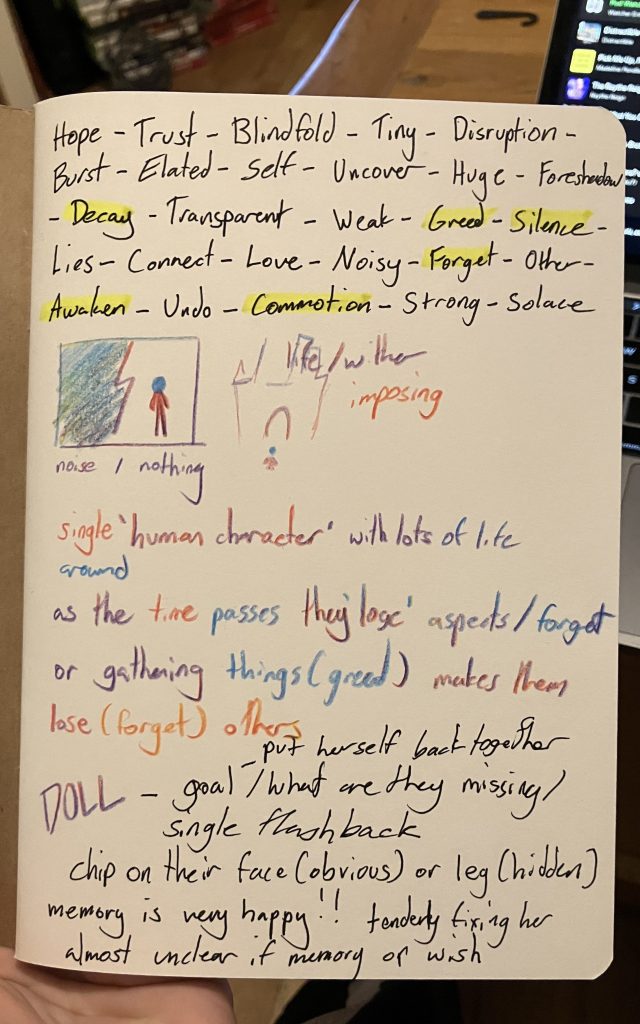 Hope - Trust - Blindfold - Tiny - Disruption -
Burst - Elated - Self - Uncover - Huge - Foreshadow
- Decay - Transparent - Weak - Greed - Silence -
Lies - Connect - Love - Noisy - Forget - Other -
Awaken - Undo - Commotion - Strong - Solace
life / wither
imposing
noise / nothing
single 'human character' with lots of life
around
as the time passes they 'lose' aspects / forget
or gathering things (greed) makes them
lose (forget) others
- put herself back together
DOLL - goal / what are they missing /
single flashback
chip on their face (obvious) or leg (hidden)
memory is very happy!! tenderly fixing her
almost unclear if memory or wish